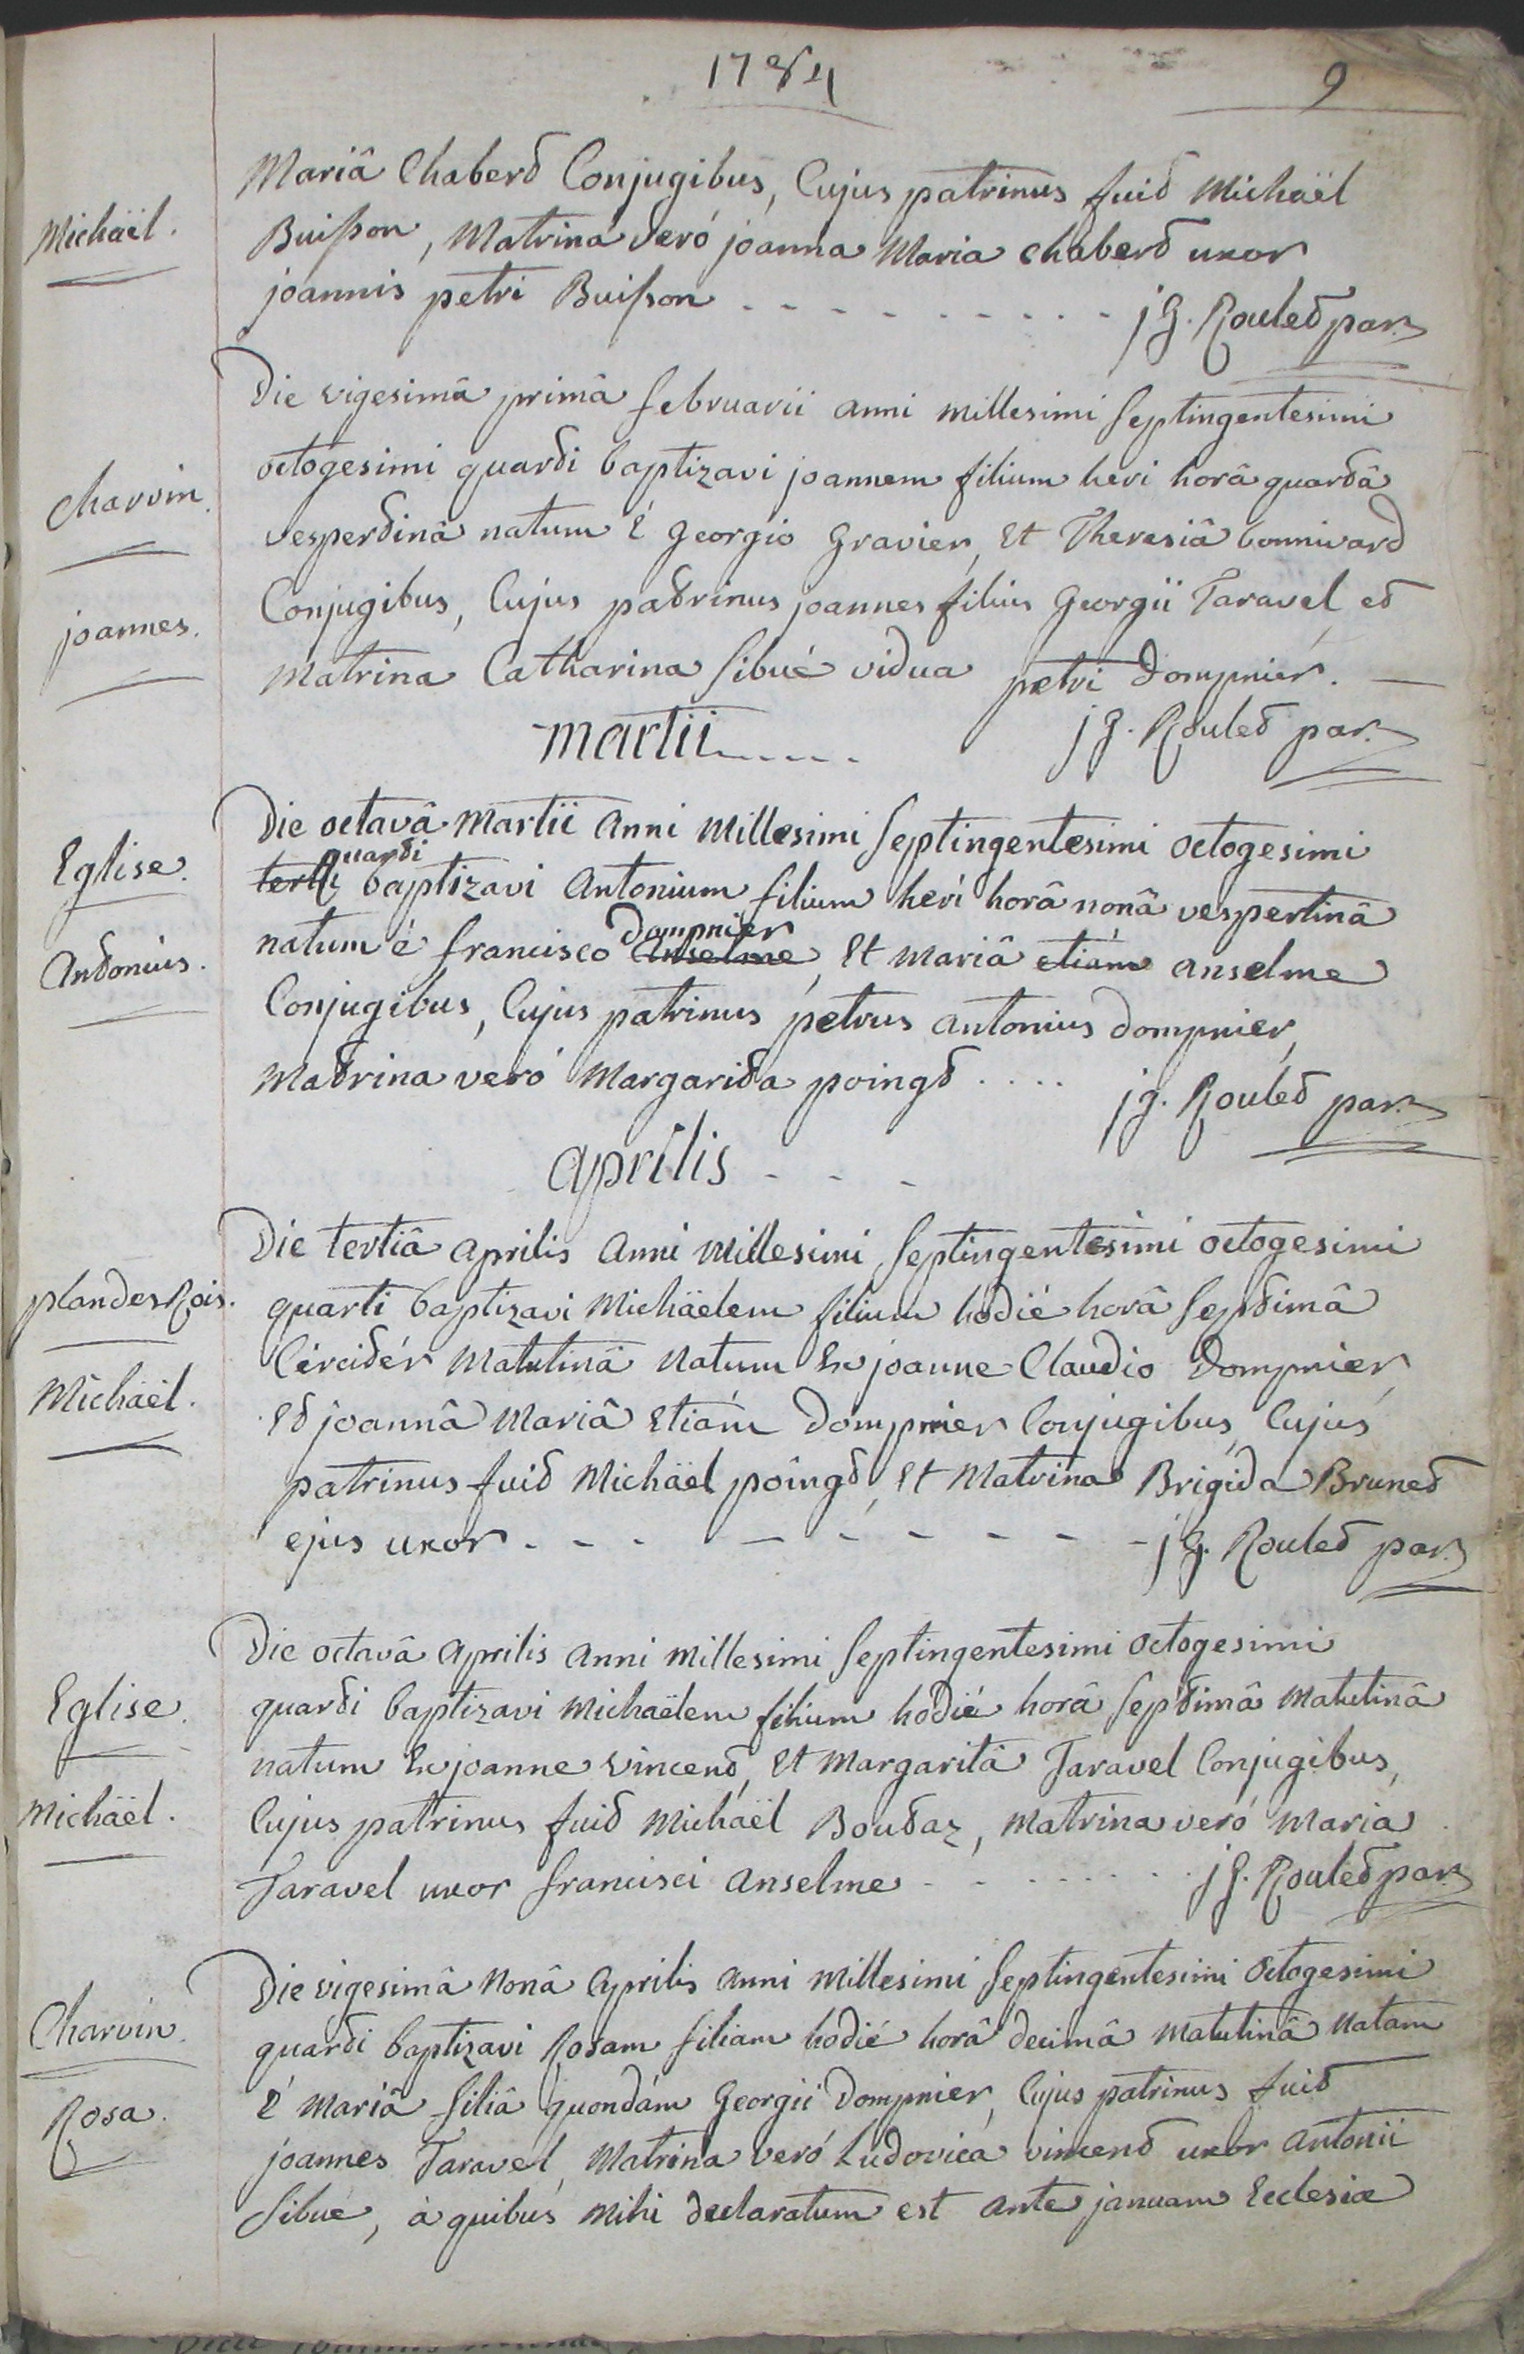 1784
9
Mariâ Chabert Conjugibus, Cujus patrinus fuit Michäel
Michäel.
Buisson, Matrina veró joanna Maria chabert uxor
joannis petri Buisson - - - - - - - - - j G. Roulet par.
Die vigesimâ primâ februarii anni millesimi Septingentesimi
octogesimi quarti baptizavi joannem filium heri horâ quartâ
Charvin.
vespertinâ natum é Georgio Gravier, et Theresiâ bonnivard
Conjugibus, Cujus patrinus joannes filius Georgii Taravel, et
joannes.
Matrina Catharina Sibué vidua petri Dompnier. —
martii - - - - -
j G. Roulet par.
Die octavâ Martii anni Millesimi Septingentesimi octogesimi
Eglise.
quarti
tertii baptizavi Antonium filium heri horâ nonâ vespertinâ
Dompnier
natum é francisco Anselme, et Mariâ etiám anselme
Antonius.
Conjugibus, Cujus patrinus petrus antonius Dompnier,
Matrina veró Margarita poingt . . . . j G. Roulet par.
aprilis - - -
Die tertiâ aprilis anni Millesimi Septingentesimi octogesimi
plandesRois.
quarti baptizavi Michäelem filium hodié horâ Septimâ
Circitér Matutinâ Natum Ex joanne Claudio Dompnier,
Michäel.
Et joannâ Mariâ etiám Dompnier Conjugibus, Cujus
patrinus fuit Michäel poingt, et Matrina Brigida Brunet
ejus uxor - - - - - - - - - - j G. Roulet par.
Die octavâ aprilis anni Millesimi Septingentesimi octogesimi
Eglise.
quarti baptizavi Michaëlem filium hodié horâ Septimâ Matutinâ
natum Ex joanne vincent, et Margaritâ Taravel Conjugibus,
Michäel.
Cujus patrinus fuit Michäel Boutaz, matrina veró Maria
Taravel uxor francisci anselme - - - - - - - j G. Roulet par.
Die vigesimâ Nonâ aprilis anni Millesimi Septingentesimi octogesimi
Charvin.
quarti baptizavi Rosam filiam hodié horâ decimâ Matutinâ Natam
é Mariâ filiâ quondám Georgii Dompnier, Cujus patrinus fuit
Rosa.
joannes Taravel, Matrina veró Ludovica vincent uxor antonii
Sibué, à quibus Mihi declaratum est ante januam Ecclesiæ